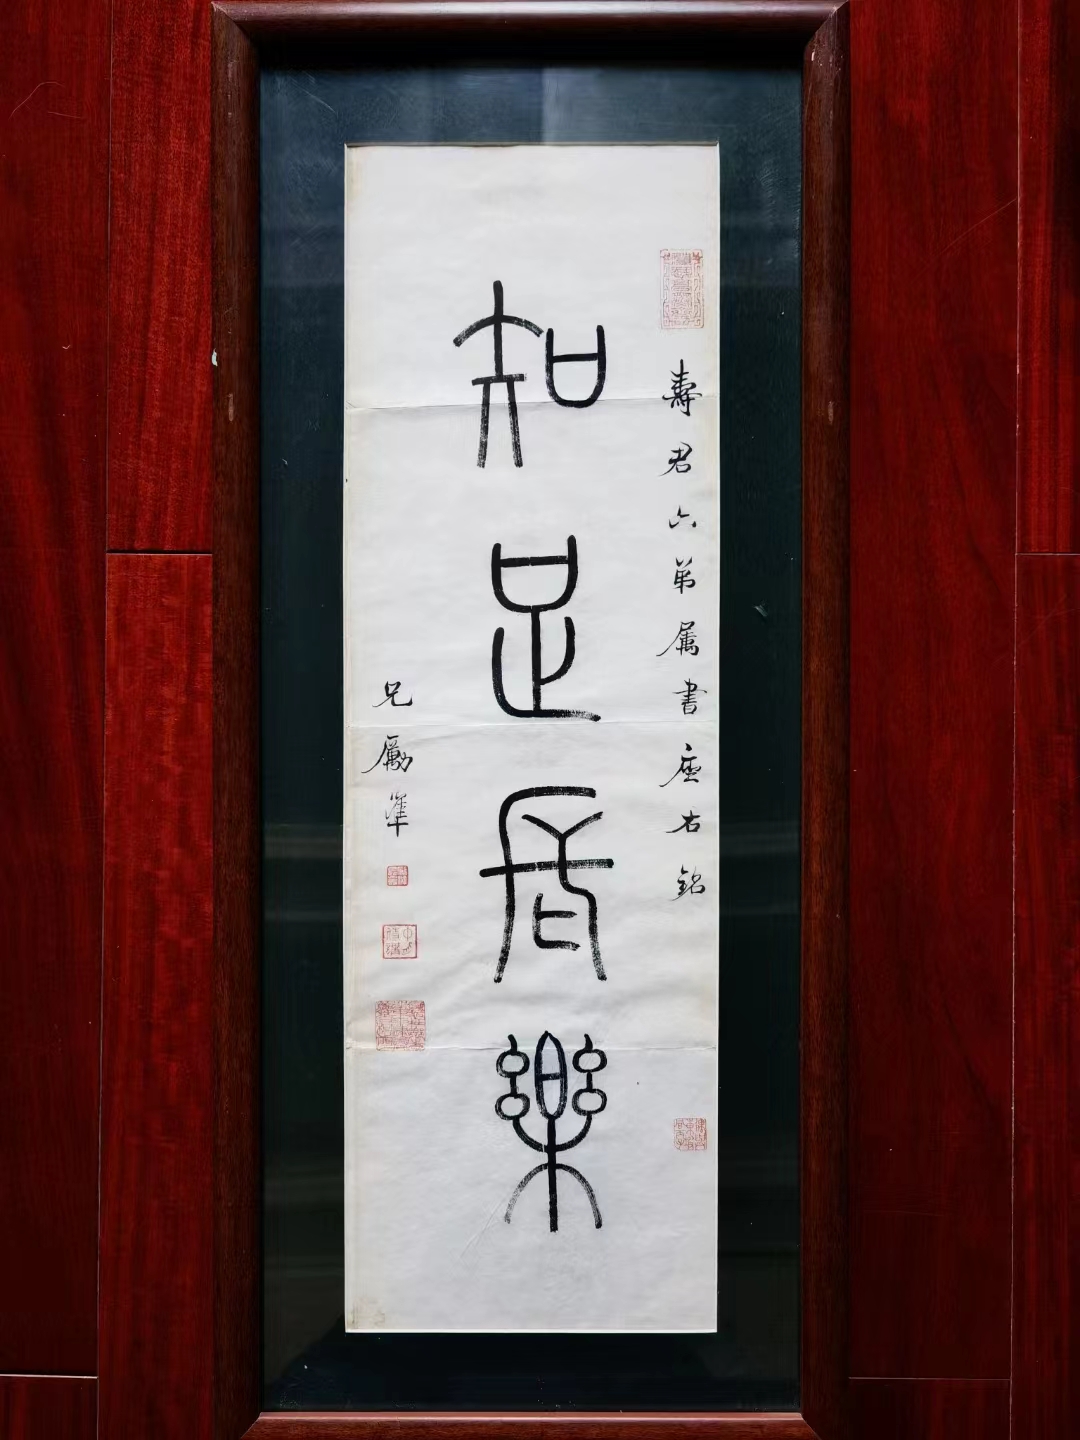 壽君六弟属書座右銘
知足長樂
兄勵準